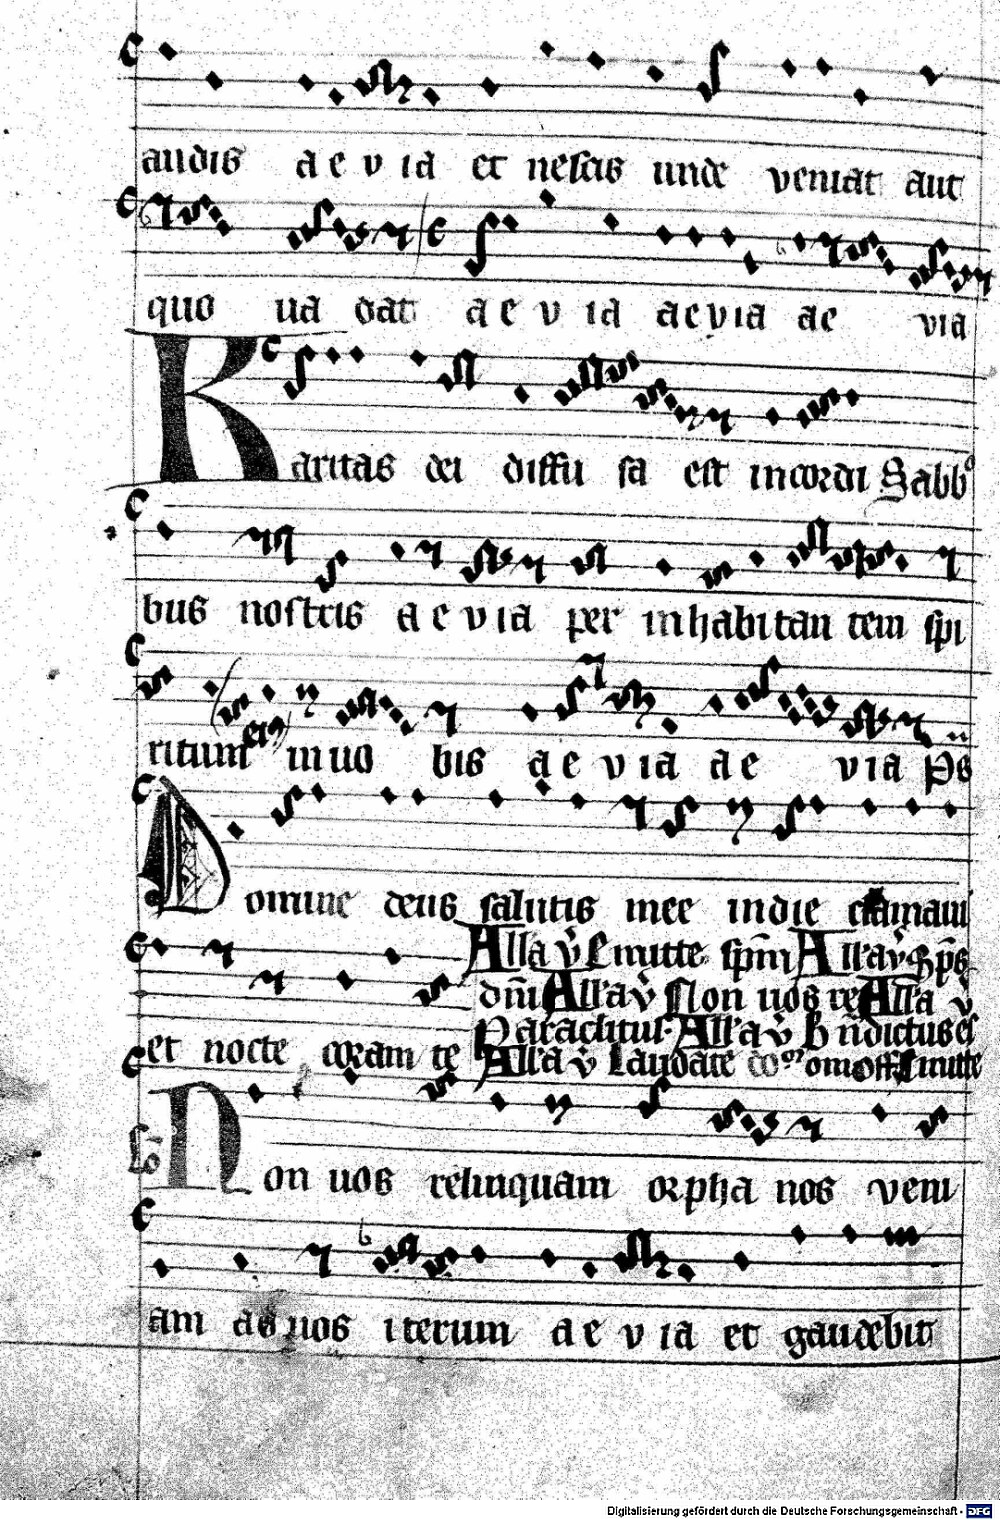 audis a e v ia et nescis unde veniat aut
quo ua dat a e v ia aevia ae via
Karitas dei diffu sa est incordi Sabbo
bus nostris a e v ia per inhabitan tem spi
ritum eius inuo bis a e v ia a e via Ps
Domine deus salutis mee indie clamaui
Alla v Emitte spm All'a v Sps
dm All'a v Non uos re Alla v
et nocte coram te Paraclitus All'a v Bndictus es
All'a v Laudate do om off Emitte
Non uos relinquam orpha nos veni
am ad uos iterum a e v ia et gaudebit
Digitalisierung gefördert durch die Deutsche Forschungsgemeinschaft - DFG